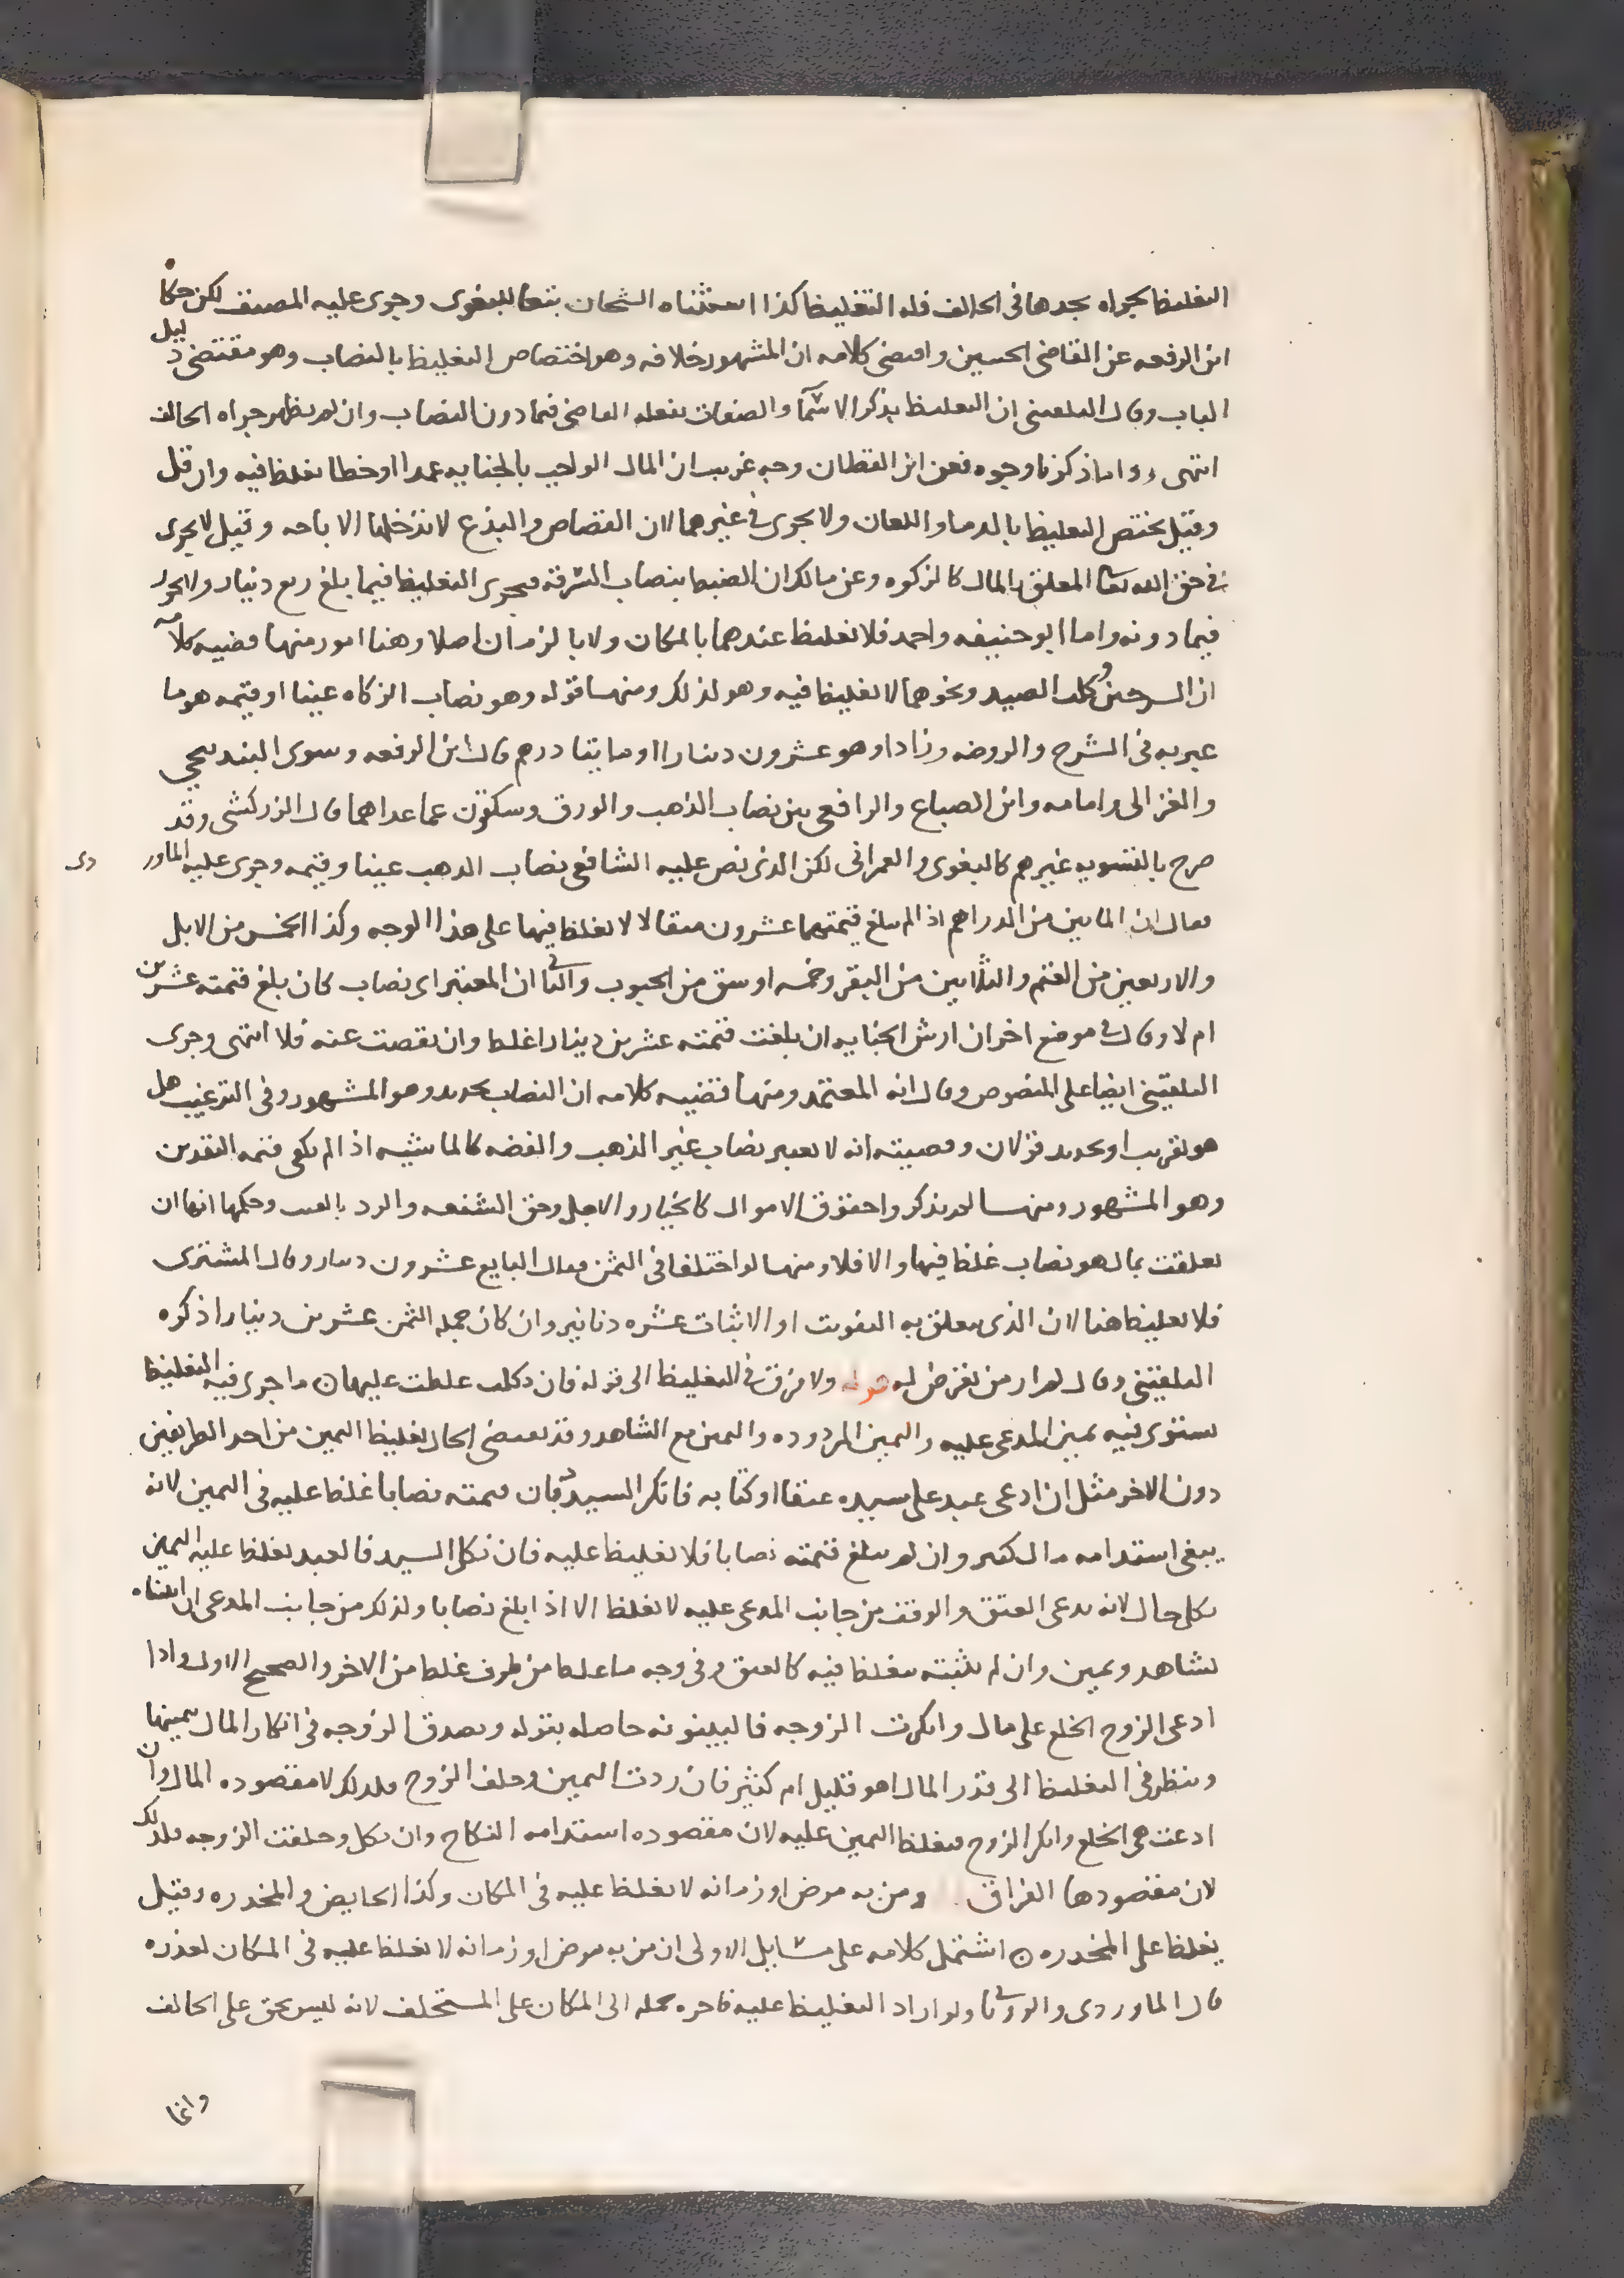 التغليظ لجراه يجدها في الحالف فله التغليظ كذا استثناه الشيخان تبعا للبغوى وجرى عليه المصنف لكن حكا
ابن الرفعه عن القاضي الحسين واقتضى كلامه ان المشهور خلافه وهو اختصاص التغليظ بالنصاب وهو مقتضى دليل
الباب وقال البلقيني ان التغليظ بذكر الاسما والصفات يفعله القاضي فيما دون النصاب وان لم يظهر جراه الحالف
انتهى وما ذكرنا وجوه فعن ابن القطان وجه غريب ان المال الواجب بالجنايه عمدا او خطا يغلظ فيه وان قل
وقيل يختص التغليظ بالدما واللعان ولا يجرى في غيرهما لان القصاص والبذع لا تدخلها الاباحه وقيل لا يجرى
في حق الله تعا المعلق بالمال كالزكوه وعن مالك ان الضبط بنصاب السرقه فيجرى التغليظ فيما بلغ ربع دينار ولا يجرى
فيما دونه واما ابو حنيفه واحمد فلا تغليظ عندهما بالمكان ولا بالزمان اصلا وهنا امور منها قضيه كلامه
ان السرجين وكلب الصيد ونحوهما لا تغليظ فيه وهو لذلك ومنها قوله وهو نصاب الزكاه عينا او قيمه هو ما
عبر به في الشرح والروضه وزادا وهو عشرون دينارا او مايتا درهم قال ابن الرفعه وسوى البندنيجي
والغزالى وامامه وابن الصباغ والرافعي بين نصاب الذهب والورق وسكتون عما عداهما قال الزركشى وقد
صرح بالتسويه غيرهم كالبغوى والعمرانى لكن الذى نص عليه الشافعي نصاب الذهب عينا وقيمه وجرى عليه الماوردى
فقال ان المايتين من الدراهم اذا لم يبلغ قيمتهما عشرون مثقالا لا تغلظ فيها على هذا الوجه وكذا الخمس من الابل
والاربعين من الغنم والثلاثين من البقر وخمسه اوسق من الحبوب والثاني ان المعتبر اى نصاب كان بلغ قيمته عشرين
ام لا وقال في موضع اخر ان ارش الجنايه ان بلغت قيمته عشرين دينارا غلظ وان نقصت عنه فلا انتهى وجرى
البلقيني ايضا على المنصوص وقال انه المعتمد ومنها قضيه كلامه ان النصاب تحديد وهو المشهور وفى الترغيب هل
هو تقريب او تحديد قولان وقضيته انه لا يعتبر نصاب غير الذهب والفضه كالماشيه اذا لم يكن قيمه النقدين
وهو المشهور ومنها لم يذكروا حقوق الاموال كالخيار والاجل وحق الشفعه والرد بالعيب وحكمها انها ان
تعلقت بمال هو نصاب غلظ فيها والا فلا ومنها لو اختلفا فى الثمن فقال البايع عشرون دينار وقال المشترى
فلا تغليظ هنا لان الذى يتعلق به التفويت او الاثبات عشره دنانير وان كان جمله الثمن عشرين دينارا ذكره
البلقيني وقال لم ار من تعرض له قوله ولا فرق في التغليظ الى قوله فان نكلت غلظت عليها ن ما جرى فيه التغليظ
يستوى فيه يمين المدعى عليه واليمين المردوده واليمين مع الشاهد وقد يقتضى الحال تغليظ اليمين من احد الطرفين
دون الاخر مثل ان ادعى عبد على سيده عتقا او كتابه فانكر السيد فان قيمته نصابا غلظ عليه فى اليمين لانه
يبغى استدامه مال كثير وان لم يبلغ قيمته نصابا فلا تغليظ عليه فان نكل السيد فالعبد تغلظ عليه اليمين
بكل حال لانه يدعى العتق والوقف من جانب المدعى عليه لا تغلظ الا اذا بلغ نصابا ولذلك من جانب المدعى ان اثبتناه
بشاهد ويمين وان لم نثبته تغلظ فيه كالعتق وفى وجه ما غلظ من طرف غلظ من الاخر والصحيح الاول واذا
ادعى الزوج الخلع على مال وانكرت الزوجه فالبينونه حاصله بقوله وتصدق الزوجه فى انكار المال بيمينها
وينظر فى التغليظ الى قدر المال اهو قليل ام كثير فان ردت اليمين وحلف الزوج فلذلك لا مقصوده المال وان
ادعت هى الخلع وانكر الزوج فتغلظ اليمين عليه لان مقصوده استدامه النكاح وان نكل وحلفت الزوجه فلذلك
لان مقصودها الفراق ومن به مرض او زمانه لا تغلظ عليه فى المكان وكذا الحايض والمخدره وقيل
يغلظ على المخدره ن اشتمل كلامه على مسايل الاولى ان من به مرض او زمانه لا تغلظ عليه فى المكان لعذره
قال الماوردى والرويانى ولو اراد التغليظ عليه فاجره حمله الى المكان على المستحلف لانه ليس بحق على الحالف
وانما